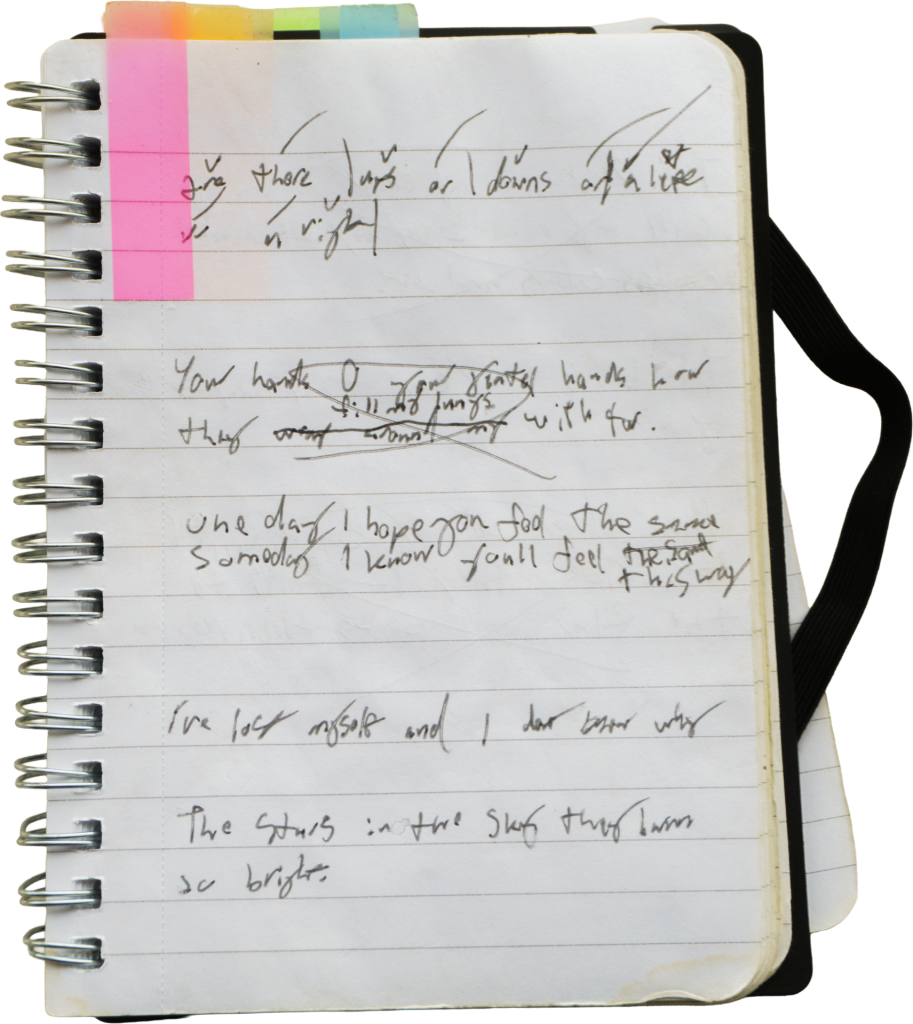 are there ups or downs at a life
is a right
Your hands O your gentle hands how
fill my lungs
they with for.
one day I hope you feel the same
Someday I know you'll feel the same
this way
I've lost myself and I don't know why
The stars in the sky they burn
so bright.